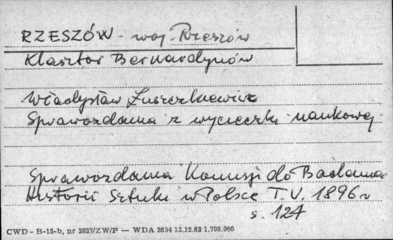 RZESZÓW - woj. Rzeszów
Klasztor Bernardynów
Władysław Łuszczkiewicz
Sprawozdania z wycieczki naukowej
Sprawozdania Komisji do Badania
Historii Sztuki w Polsce T.V. 1896 r
s. 127
CWD - B-15-b, nr 2827/ZW/P — WDA 2634 12.12.62 1.700.000